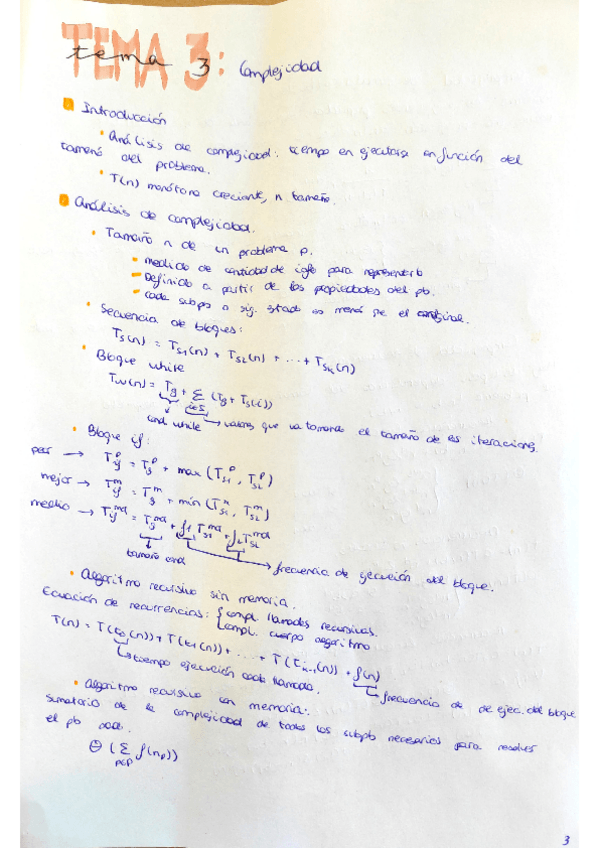 TEMA 3:
tema 3 Complejidad
Introducción
• Análisis de complejidad: tiempo en ejecutarse en función del
tamaño del problema.
• T(n) monótona creciente, n tamaño.
Análisis de complejidad.
• Tamaño n de un problema p.
medida de cantidad de info para representarlo
Definido a partir de las propiedades del pb.
cada subpb o sig. estado es menor que el original.
• Secuencia de bloques:
Ts(n) = Ts1(n) + Ts2(n) + ... + Tsk(n)
• Bloque while
Tw(n) = Tg + Σ (Tg + Ts(i))
i∈S
cond while valores que va tomando el tamaño de las iteraciones.
• Bloque if:
peor → T^p_if = T^p_g + max (T^p_s1, T^p_s2)
mejor → T^m_if = T^m_g + min (T^m_s1, T^m_s2)
medio → T^md_if = T^md_g + f1 T^md_s1 + f2 T^md_s2
tamaño cond frecuencia de ejecución del bloque.
• Algoritmo recursivo sin memoria.
Ecuación de recurrencias: { compl. llamadas recursivas.
compl. cuerpo algoritmo
T(n) = T(t0(n)) + T(t1(n)) + ... + T(tk-1(n)) + f(n)
tiempo ejecución cada llamada. frecuencia de de ejec. del bloque
• Algoritmo recursivo con memoria.
sumatorio de la complejidad de todos los subpb necesarios para resolver
el pb
Θ (Σ f(np))
p∈P
3